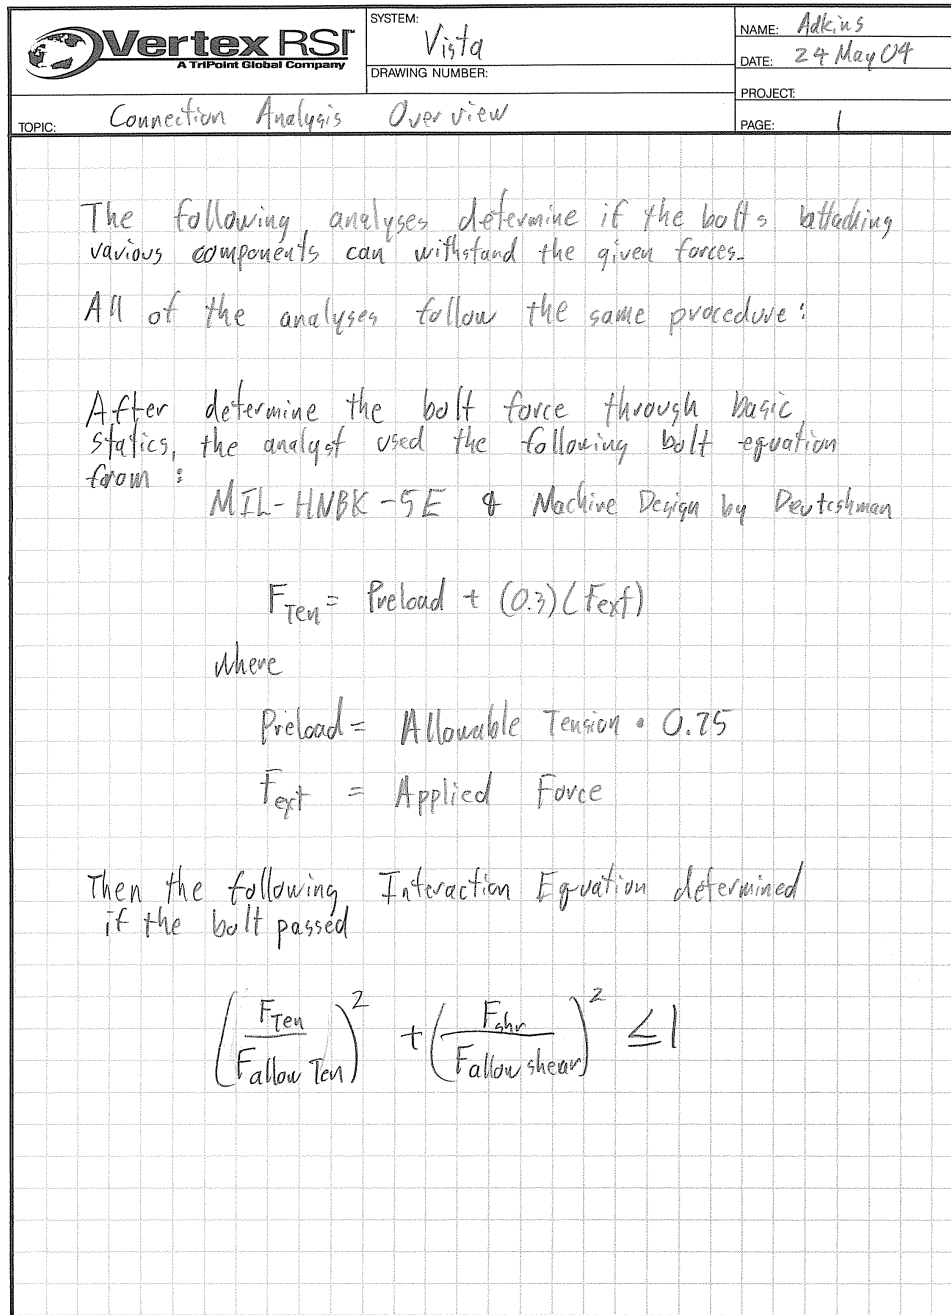 Vertex RSI
A TriPoint Global Company
SYSTEM:
Vista
DRAWING NUMBER:
NAME: Adkins
DATE: 24 May 04
PROJECT:
TOPIC: Connection Analysis Overview
PAGE: 1
The following analyses determine if the bolts attaching
various components can withstand the given forces.
All of the analyses follow the same procedure:
After determine the bolt force through basic
statics, the analyst used the following bolt equation
from:
MIL-HNBK-5E & Machine Design by Deutcshman
F_Ten = Preload + (0.3)(Fext)
where
Preload = Allowable Tension • 0.75
F_ext = Applied Force
Then the following Interaction Equation determined
if the bolt passed
(F_Ten / F_allow Ten)^2 + (F_shr / F_allow shear)^2 ≤ 1